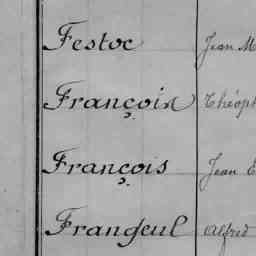 Festoc Jean M
François Théoph
François Jean
Frangeul Alfred